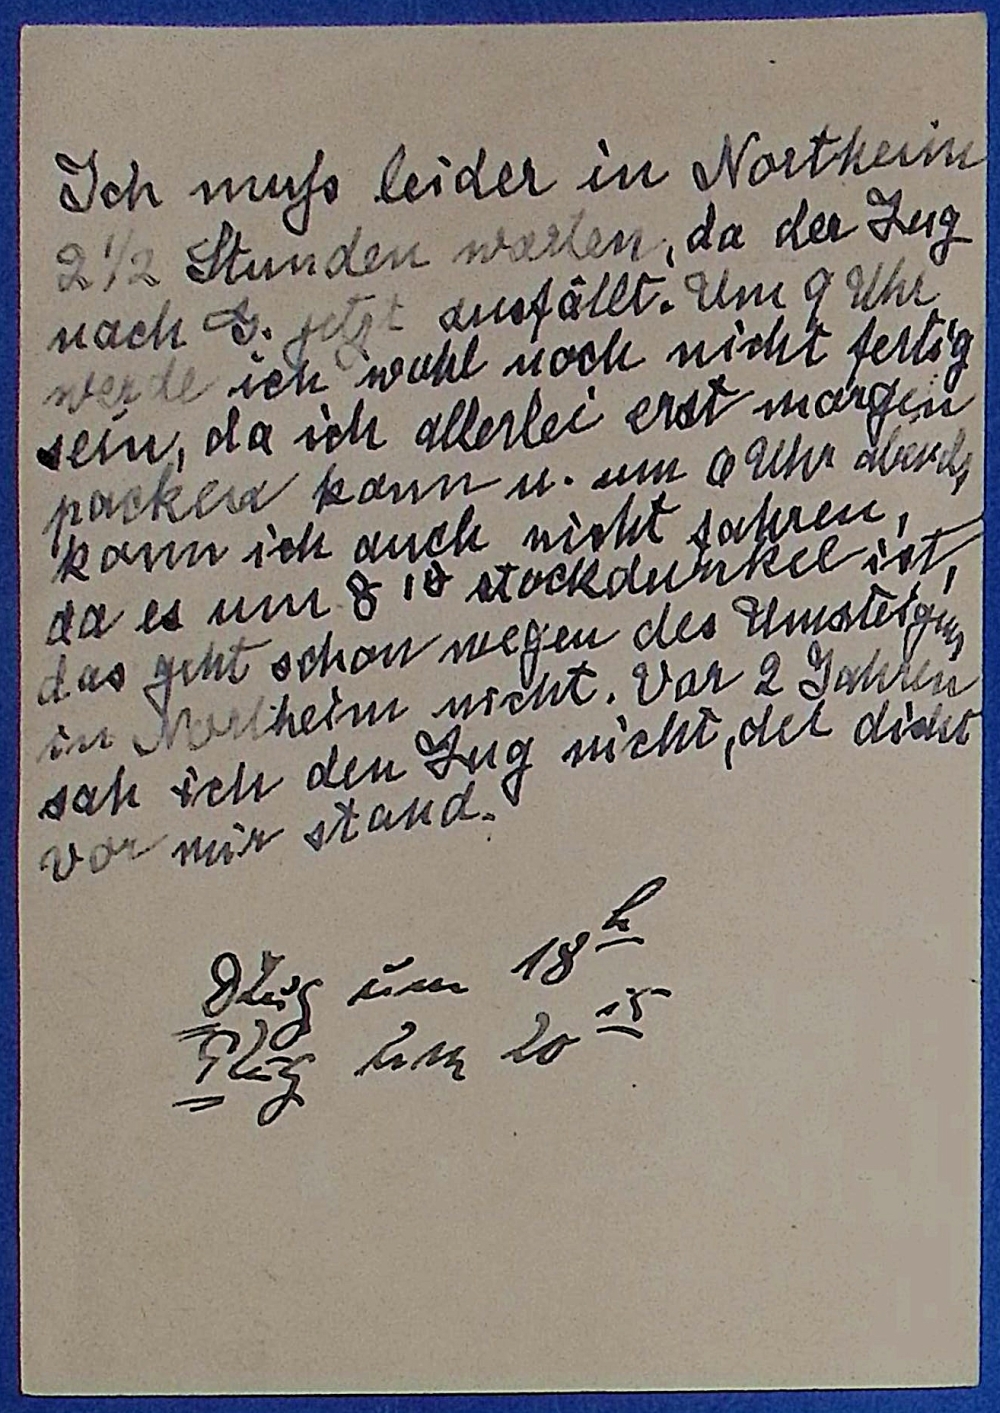 Ich muß leider in Northeim
2 1/2 Stunden warten, da der Zug
nach G. jetzt ausfällt. Um 9 Uhr
werde ich wohl noch nicht fertig
sein, da ich allerlei erst morgen
packen kann u. um 6 Uhr abends
kann ich auch nicht fahren,
da es um 8 18 stockdunkel ist,
das geht schon wegen des Umsteigens
in Northeim nicht. Vor 2 Jahren
sah ich den Zug nicht, der dicht
vor mir stand.
Zug um 18 h
Zug um 20 15